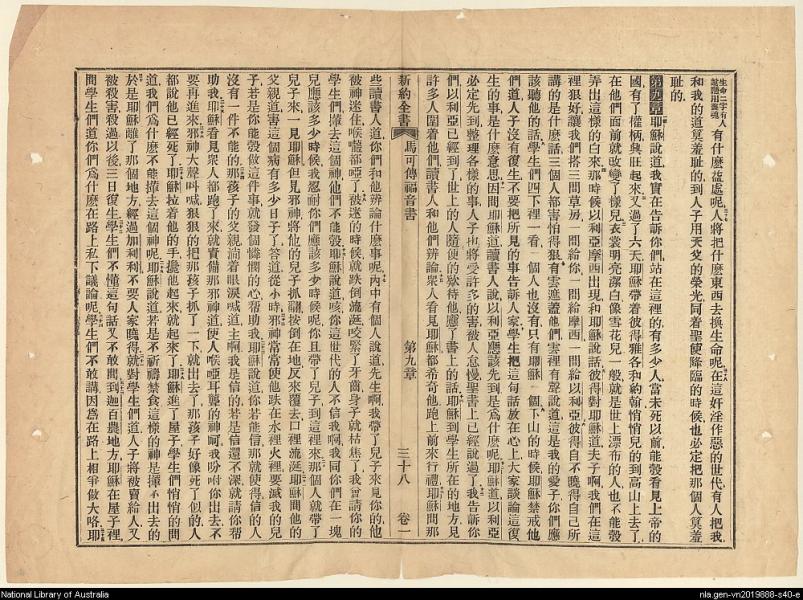 生命二字有人譯應用靈魂
人有什麼益處呢、人將把什麼東西去換生命呢、在這奸淫作惡的世代、有人把我
和我的道算羞恥的、到人子用天父的榮光同着聖使降臨的時候、也必定把那個人算羞
恥的
第九章耶穌說道、我實在告訴你們、站在這裡的、有多少人、當未死以前、能彀看見上帝的
國、有了權柄興旺起來、又過了六天、耶穌帶着彼得雅各和約翰悄悄兒的到高山上去了、
在他們面前就改變了樣兒、衣裳明亮潔白像雪花兒一般、就是世上漂布的人、也不能彀
弄出這樣的白來、那時候以利亞摩西出現、和耶穌說話、彼得對耶穌道、夫子啊、我們在這
裡狠好、讓我們搭三間草房、一間給你、一間給摩西、一間給以利亞、彼得自不曉得自己所
講的是什麼話、三個人都害怕得狠、有雲遮蓋他們、雲裡有聲說道、這是我的愛子、你們應
該聽他的話、學生們四下裡一看、一個人也沒有、只有耶穌一個、下山的時候、耶穌禁戒他
們道、人子沒有復生、不要把所見的事告訴人家、學生把這句話放在心上、大家談論這復
生的事是什麼意思、因問耶穌道、讀書人說、以利亞應該先到、是爲什麼呢、耶穌道、以利亞
必定先到、整理各樣的事、人子也將受許多的害、被人怠慢、聖書上已經說過了、我告訴你
們、以利亞已經到了、世上的人隨便的欵待他、應了書上的話、耶穌到學生所在的地方、見
許多人圍着他們、讀書人和他們辨論、衆人看見耶穌、都希奇他、跑上前來行禮、耶穌問那
新約全書 馬可傳福音書 第九章 三十八 卷一
些讀書人道、你們和他辨論什麼事呢、內中有個人說道、先生啊、我帶了兒子來見你的、他
被神迷住、喉嚨都啞了、被迷的時候、就跌倒流涎咬緊了牙齒、身子就枯焦了、我曾請你的
學生們攆去這個神、他們不能彀、耶穌說道、咳、你這世代的人、不信我啊、我同你們在一塊
兒應該多少時候、我忍耐你們應該多少時候呢、你且帶了兒子到這裡來、那個人就帶了
兒子來、一見耶穌、但見邪神將他的兒子抓翻、按倒在地、反來覆去、口裡流涎、耶穌問他的
父親道、害這個病有多少日子了、答道、從小時、邪神常常使他跌在水裡火裡、要滅我的兒
子、若是你能彀做這件事、就發個憐憫的心、幫助我、耶穌說道、你若能信、那就使得、信的人、
沒有一件不能的、那孩子的父親淌着眼淚喊道、主啊、我是信的、若是信還不深、就請你幫
助我、耶穌看見衆人都跑了來、就責備那邪神道、使人喉啞耳聾的神啊、我吩咐你出去、不
要再進來、邪神大聲叫喊、狠狠的把那孩子抓了一下、就出去了、那孩子好像死了似的、人
都說他已經死了、耶穌拉着他的手攙他起來、就起來了、耶穌進了屋子、學生們悄悄的問
道、我們爲什麼不能攆去這個神呢、耶穌說道、若是不祈禱禁食、這樣的神是攆不出去的、
於是耶穌離了那個地方、經過加利利、不要人家曉得、就對學生們道、人子將被賣給人、又
被殺害、殺過以後三日復生、學生們不懂這句話、又不敢問、到迦百農地方、耶穌在屋子裡、
問學生們道、你們爲什麼在路上私下議論呢、學生們不敢講、因爲在路上相爭做大咯、耶
National Library of Australia
nla.gen-vn2019888-s40-e